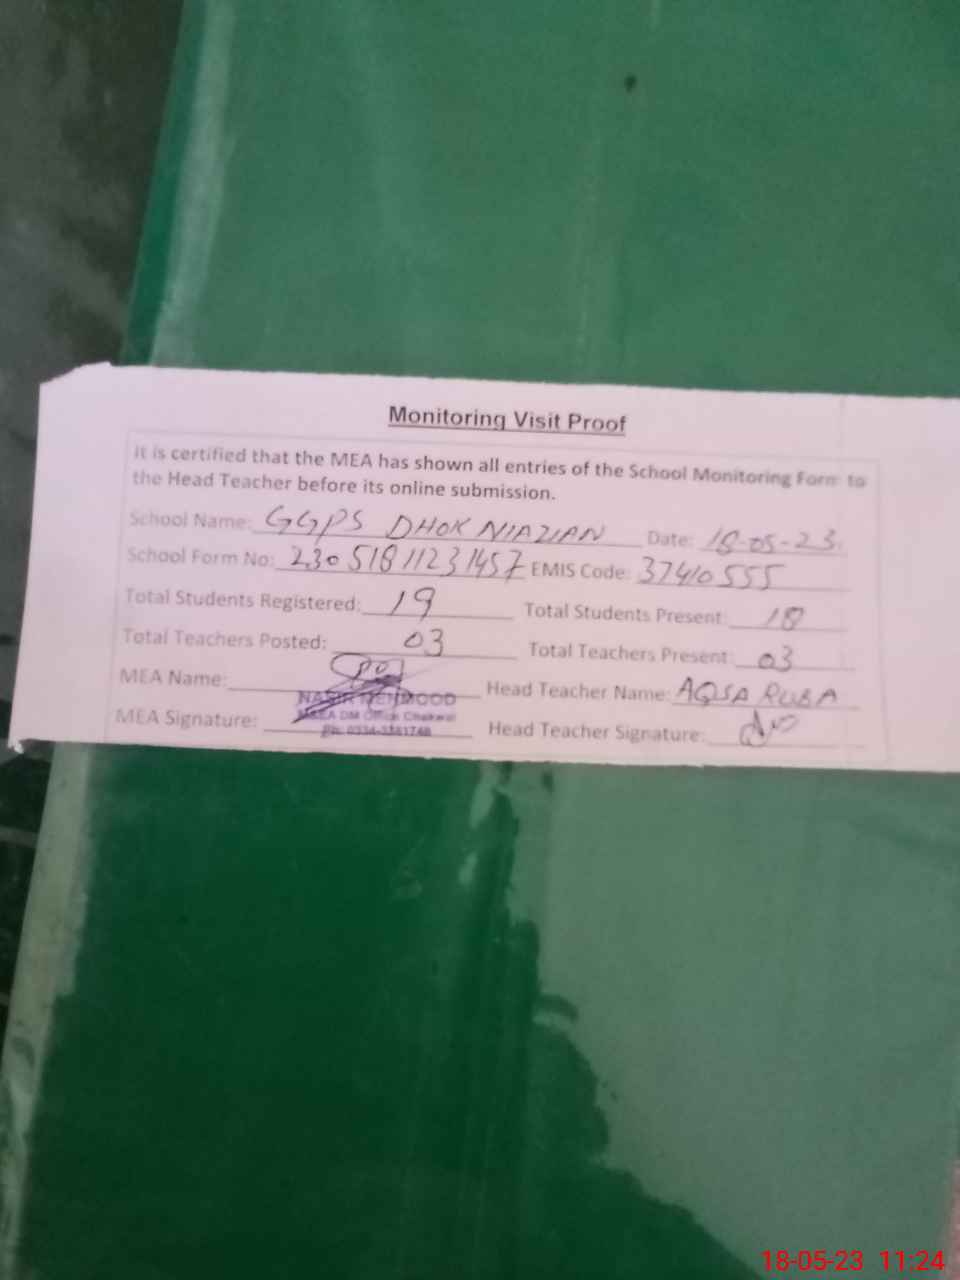 Monitoring Visit Proof
It is certified that the MEA has shown all entries of the School Monitoring Form to
the Head Teacher before its online submission.
School Name: GGPS DHOK NIAZIAN Date: 18-05-23.
School Form No: 23051811231457 EMIS Code: 37410555
Total Students Registered: 19 Total Students Present: 18
Total Teachers Posted: 03 Total Teachers Present: 03
MEA Name: Head Teacher Name: AQSA RUBA
NASIR MEHMOOD
MEA DM Office Chakwal
MEA Signature: Head Teacher Signature:
18-05-23 11:24